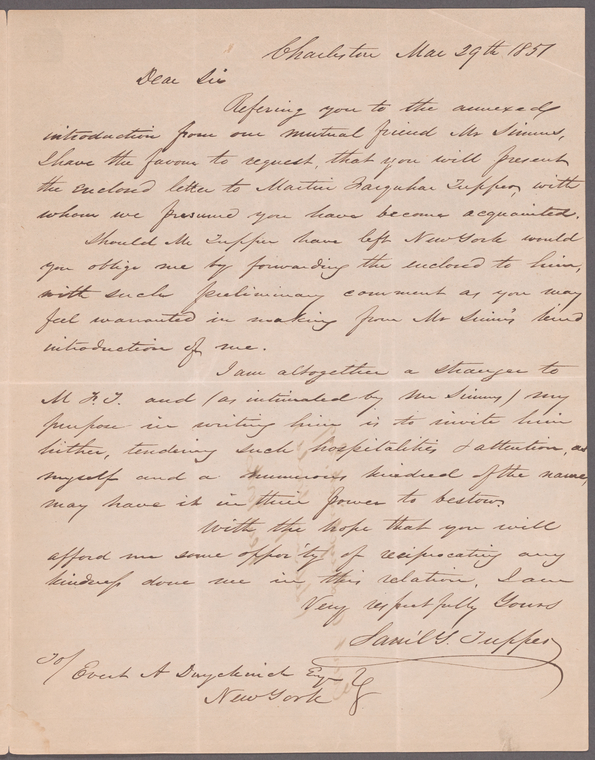 Charleston Mar 29th 1851
Dear Sir
Refering you to the annexed
introduction from our mutual friend Mr Simms,
I have the favour to request, that you will present
the enclosed letter to Martin Farquhar Tupper, with
whom we presume you have become acquainted.
Should Mr Tupper have left New York would
you oblige me by forwarding the enclosed to him,
with such preliminary comment as you may
feel warranted in making from Mr Simms kind
introduction of me.
I am altogether a stranger to
M F. T. and (as intimated by Mr Simms) my
purpose in writing him is to invite him
hither, tendering such hospitalities & attention, as
myself and a numerous kindred of the name,
may have it in their power to bestow.
With the hope that you will
afford me some oppor'ty of reciprocating any
kindness done me in this relation, I am
Very respectfully Yours
Saml Y. Tupper
To/
Evert A Duyckinck Esq
New York